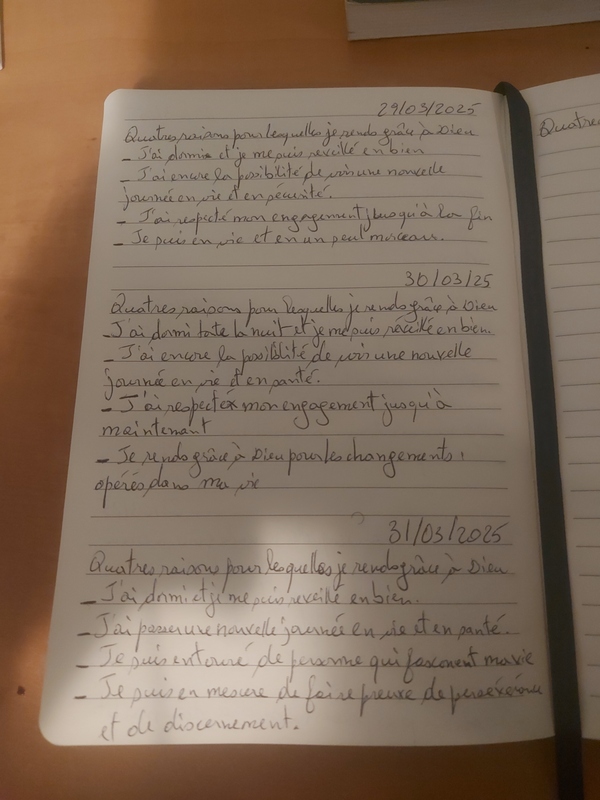 29/03/2025
Quatres raisons pour lesquelles je rends grâce à Dieu
- J'ai dormie et je me suis réveillé en bien
- J'ai encore la possibilité de voir une nouvelle
journée en vie et en sécurité.
- J'ai respecté mon engagement jusqu'à la fin
- Je suis en vie et en un seul morceau.
30/03/25
Quatres raisons pour lesquelles je rends grâce à Dieu
- J'ai dormi toute la nuit et je me suis réveillé en bien.
- J'ai encore la possibilité de voir une nouvelle
journée en vie et en santé.
- J'ai respecté mon engagement jusqu'à
maintenant
- Je rends grâce à Dieu pour les changements
opérés dans ma vie
31/03/2025
Quatres raisons pour lesquelles je rends grâce à Dieu
- J'ai dormi et je me suis reveillé en bien.
- J'ai passer une nouvelle journée en vie et en santé.
- Je suis entouré de personne qui façonent ma vie
- Je suis en mesure de faire preuve de persévérance
et de discernement.
Quatres